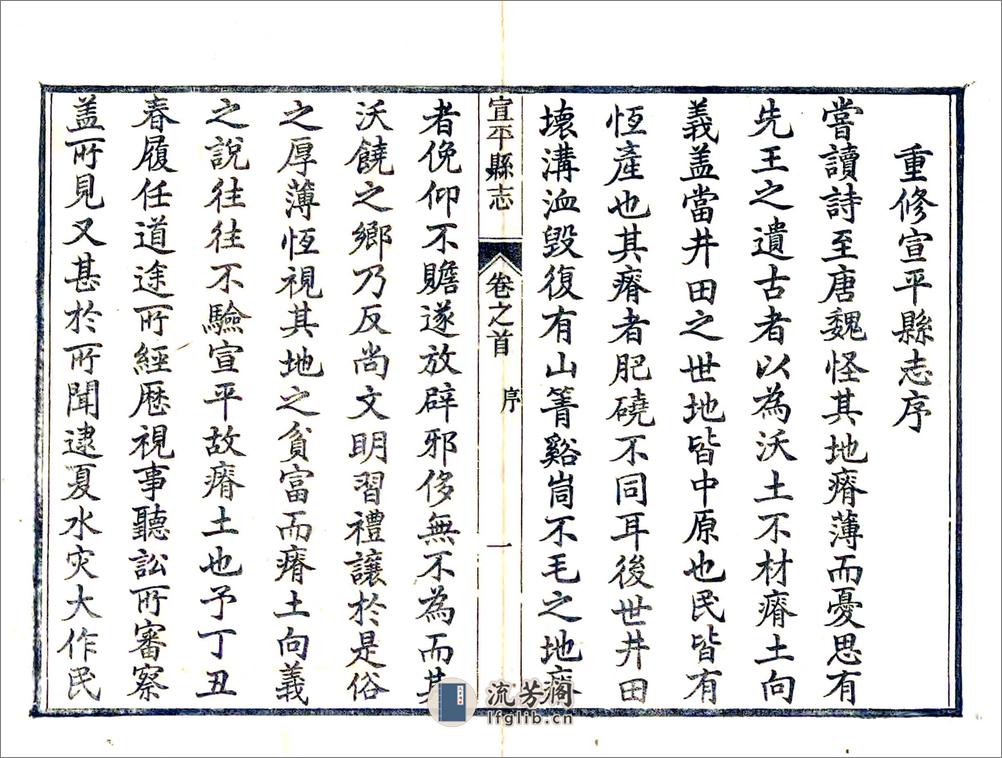 重修宣平縣志序
嘗讀詩至唐魏怪其地瘠薄而憂思有
先王之遺古者以為沃土不材瘠土向
義盖當井田之世地皆中原也民皆有
恆產也其瘠者肥磽不同耳後世井田
壊溝洫毀復有山箐谿峝不毛之地瘠
宣平縣志
卷之首
序
一
者俛仰不贍遂放辟邪侈無不為而其
沃饒之鄉乃反尚文明習禮讓於是俗
之厚薄恆視其地之貧富而瘠土向義
之說往往不驗宣平故瘠土也予丁丑
春履任道途所經歷視事聽訟所審察
盖所見又甚於所聞逮夏水灾大作民
流芳阁
lfglib.cn